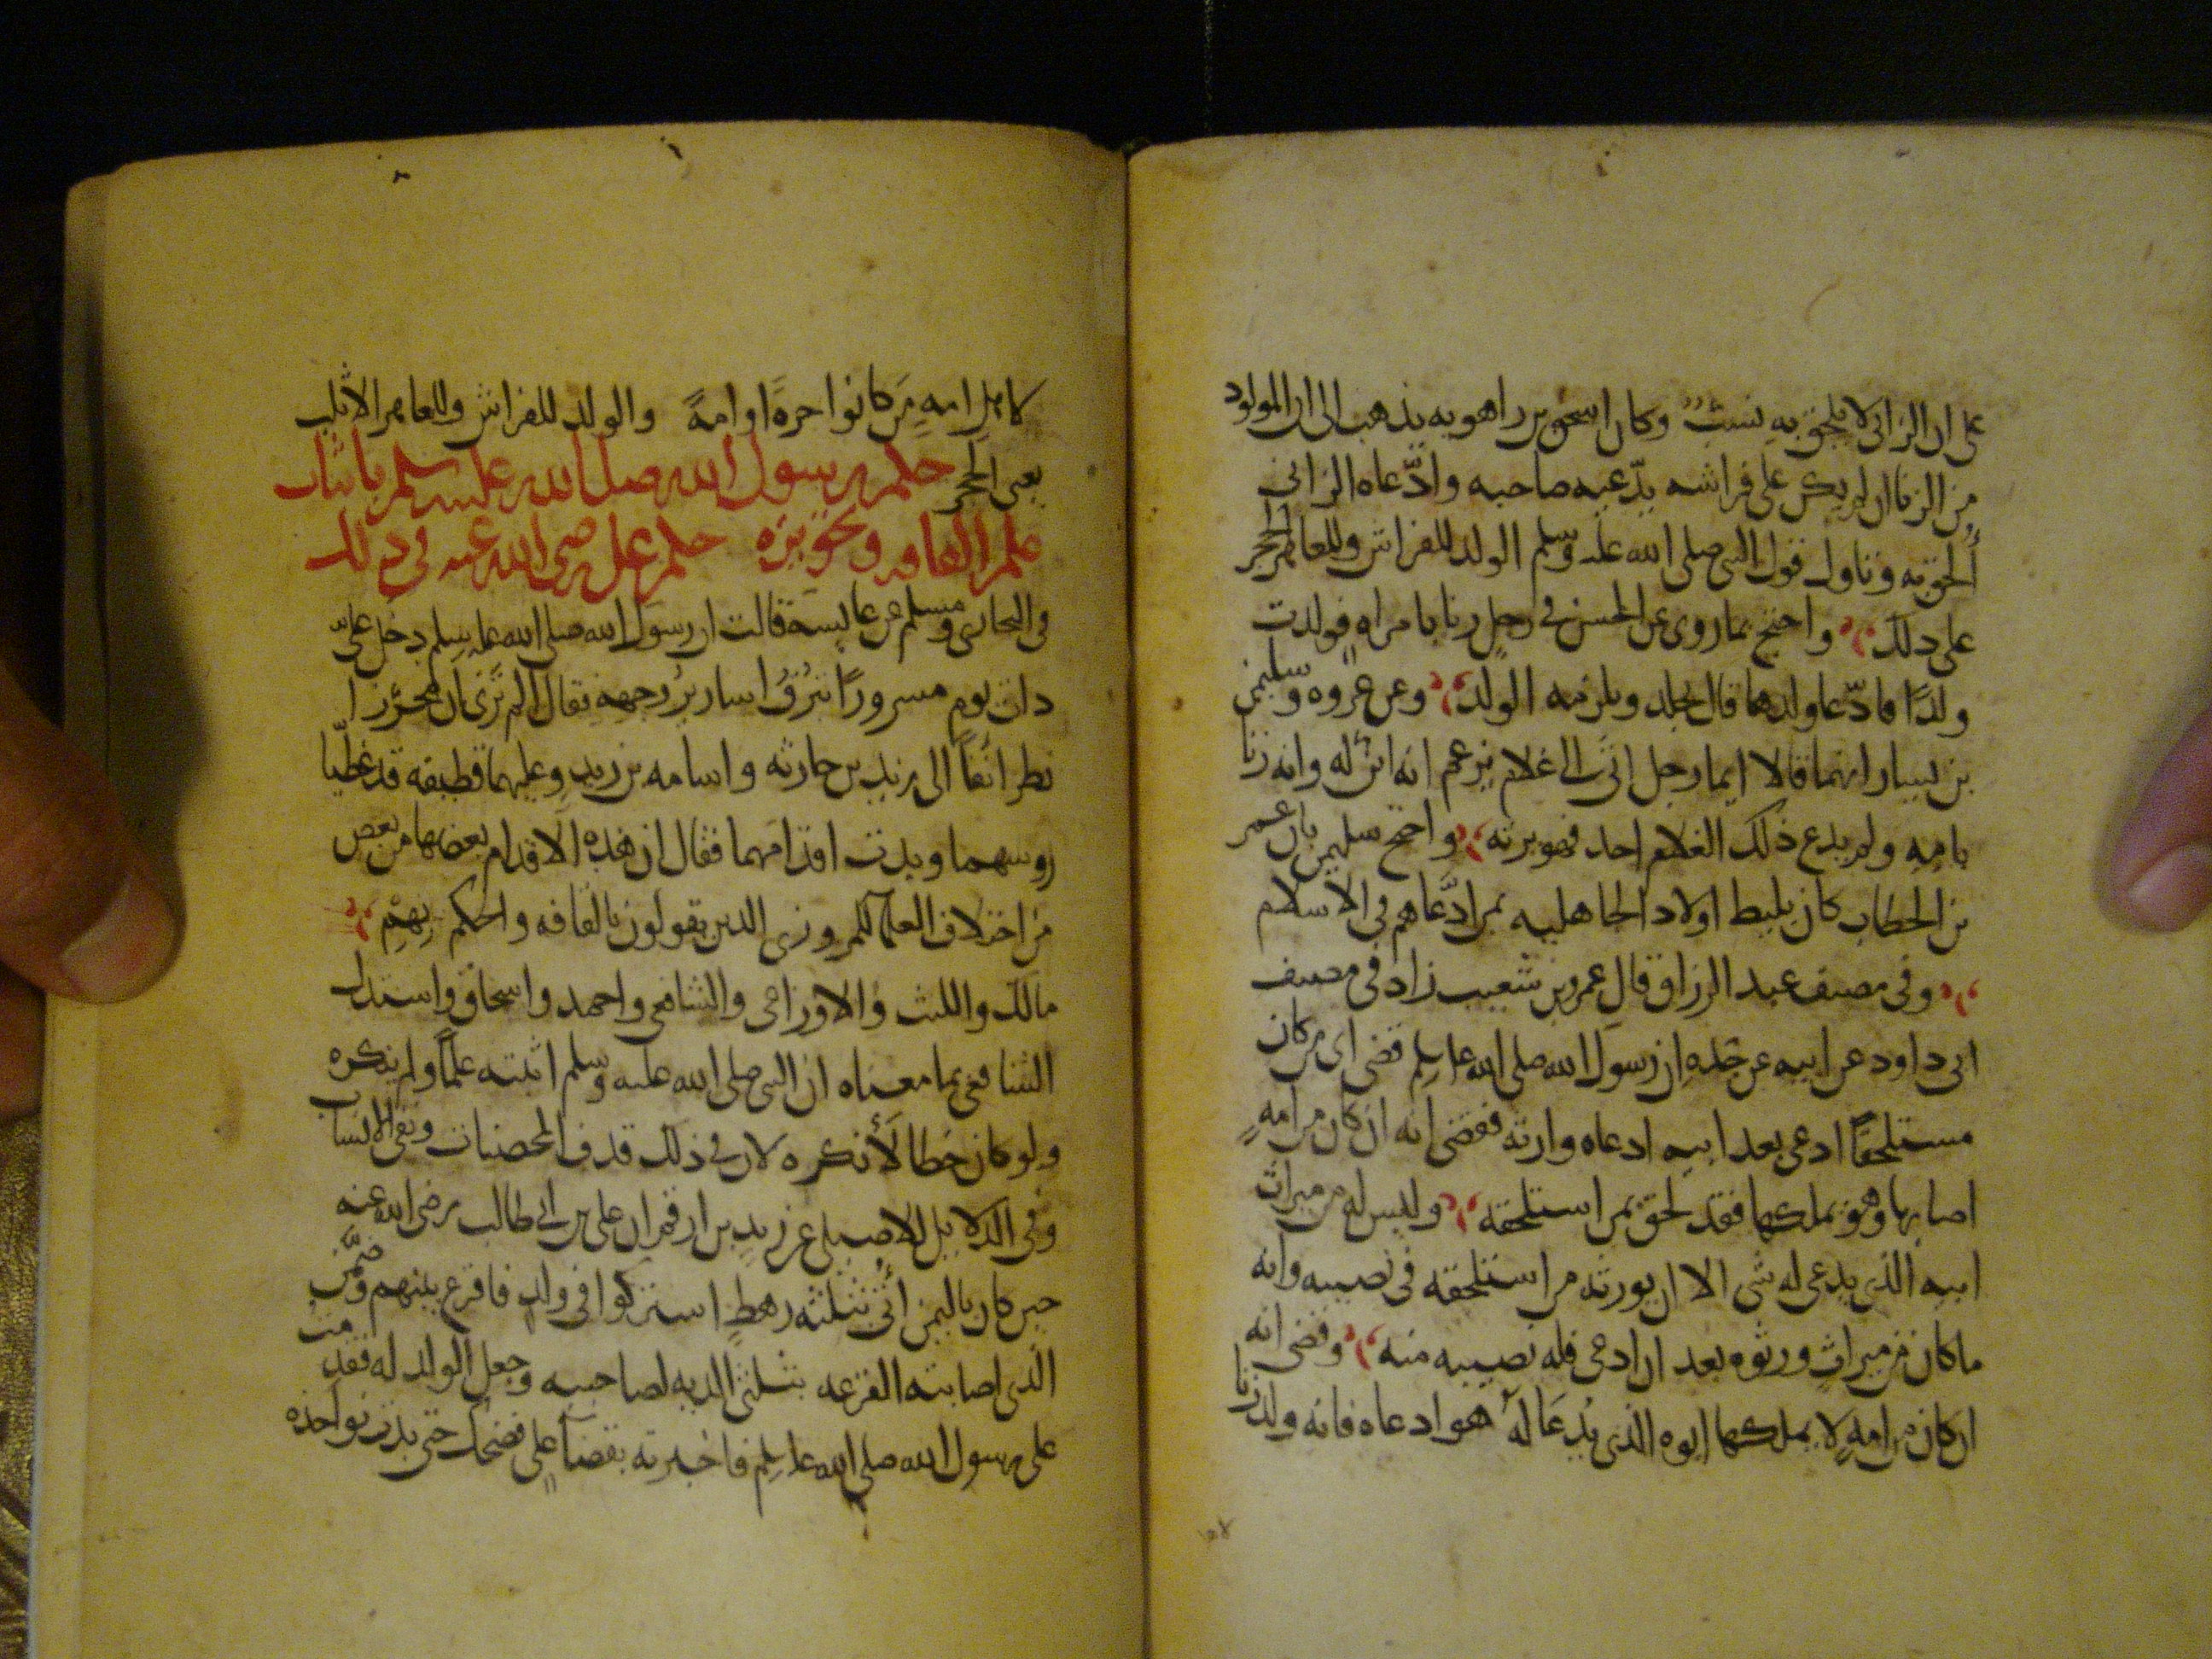 على ان الزانى لا يلحق به نسب وكان اسحق بن راهويه يذهب الى ان المولود
من الزنا ان لم يكن على فراشه يدّعيه صاحبه وادّعاه الزانى
أُلحق به وتاول قول النبى صلى الله عليه وسلم الولد للفراش وللعاهر الحجر
على ذلك واحتج بما روى عن الحسن فى رجل زنا بامراه فولدت
ولدًا فادّعا ولدها قال يجلد ويلزمه الولد وعن عروه وسليمن
بن يسار انهما قالا ايما رجل اتى الى غلام يزعم انه ابن له وانه زنا
بامه ولم يدع ذلك الغلام احد فهو يرثه واحتج سليمن بان عمر
بن الخطاب كان يليط اولاد الجاهليه بمن ادّعاهم فى الاسلام
وفى مصنف عبد الرزاق قال عمرو بن شعيب زاد فى مصنف
ابى داود عن ابيه عن جده ان رسول الله صلى الله عليه وسلم قضى اى من كان
مستلحقًا ادعى بعد ابيه ادعاه وارثه فقضى انه ان كان من امهٍ
اصابها وهو يملكها فقد لحق بمن استلحقه وليس له من ميراث
ابيه الذى يدعى له شى الا ان يورثه من استلحقه فى نصيبه وانه
ما كان من ميراث ورثوه بعد ان ادعى فله نصيبه منه وقضى انه
ان كان من امهٍ لا يملكها ابوه الذى يُدعَا له هو ادعاه فانه ولد زنا
لاهل امهِ مَن كانوا حرةً او امةً والولد للفراش وللعاهر الاثلب
يعنى الحجر حكم رسول الله صلى الله عليه وسلم باثبات
حكم القافه وتجويزه حكم على رضى الله عنه فى ذلك
فى البخارى ومسلم عن عايشة قالت ان رسول الله صلى الله عليه وسلم دخل علىّ
ذات يوم مسرورًا تبرُقُ اسارير وجهه فقال الم تَرَى ان مُجزّزا
نظر انفًا الى زيد بن حارثه واسامه بن زيد وعليهما قطيفه قد غطّيا
روسهما وبدت اقدامهما فقال ان هذه الاقدام بعضها من بعض
من اختلاف العلما للمروزى الذين يقولون بالقافه والحكم بهم
مالك والليث والاوزاعى والشافعى واحمد واسحاق واستدل
الشافعى بما معناه ان النبى صلى الله عليه وسلم اثبته علمًا ولم ينكره
ولو كان خطا لأنكره لان فى ذلك قذف المحصنات ونفى الانساب
وفى الدلايل للاصيلى عن زيد بن ارقم ان على بن ابى طالب رضى الله عنه
حين كان باليمن اتى بثلثه رهطٍ اشتركوا فى ولد فاقرع بينهم وضمَّن
الذى اصابته القرعه بثلثى الديه لصاحبيه وجعل الولد له فقدمت
على رسول الله صلى الله عليه وسلم فاخبرته بقضآ على فضحك حتى بدت نواجذه